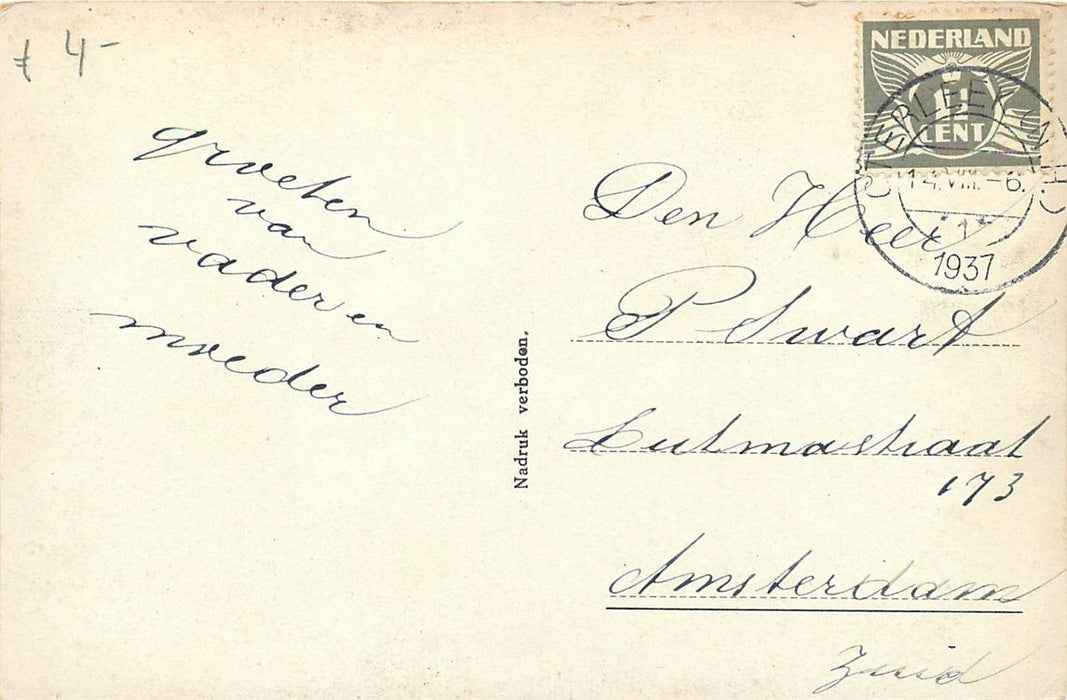 ƒ 4-
groeten
van
vader en
moeder
Nadruk verboden.
NEDERLAND
1½
CENT
OTERLEEK (N.H.)
14.VIII.-6.
1
1937
Den Heer
P Swart
Lutmastraat
173
Amsterdam
Zuid